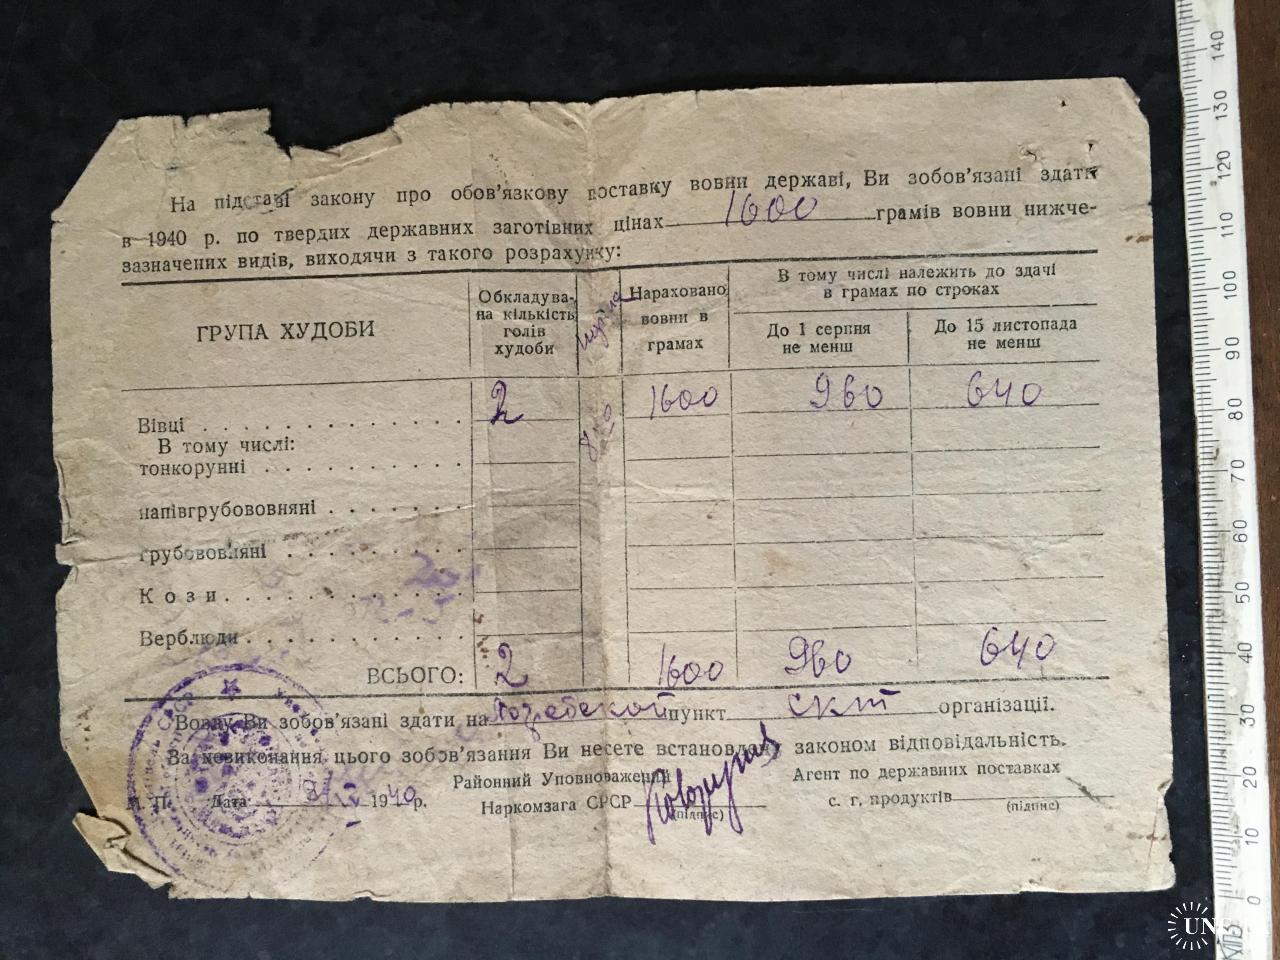 На підставі закону про обов'язкову поставку вовни державі, Ви зобов'язані здати
в 1940 р. по твердих державних заготівних цінах 1600 грамів вовни нижче-
зазначених видів, виходячи з такого розрахунку:
ГРУПА ХУДОБИ
Обкладува-
на кількість
голів
худоби
Нараховано
вовни в
грамах
В тому числі належить до здачі
в грамах по строках
До 1 серпня
не менш
До 15 листопада
не менш
Вівці 2 1600 960 640
В тому числі:
тонкорунні
напівгрубововняні
грубововняні
Кози
Верблюди
ВСЬОГО: 2 1600 960 640
Вовну Ви зобов'язані здати на пункт скт організації.
За невиконання цього зобов'язання Ви несете встановлену законом відповідальність.
Районний Уповноважений
Наркомзага СРСР
(підпис)
Агент по державних поставках
с. г. продуктів
(підпис)
М. П. Дата 1940 р.
140
130
120
110
100
90
80
70
60
50
40
30
20
10
0
UN